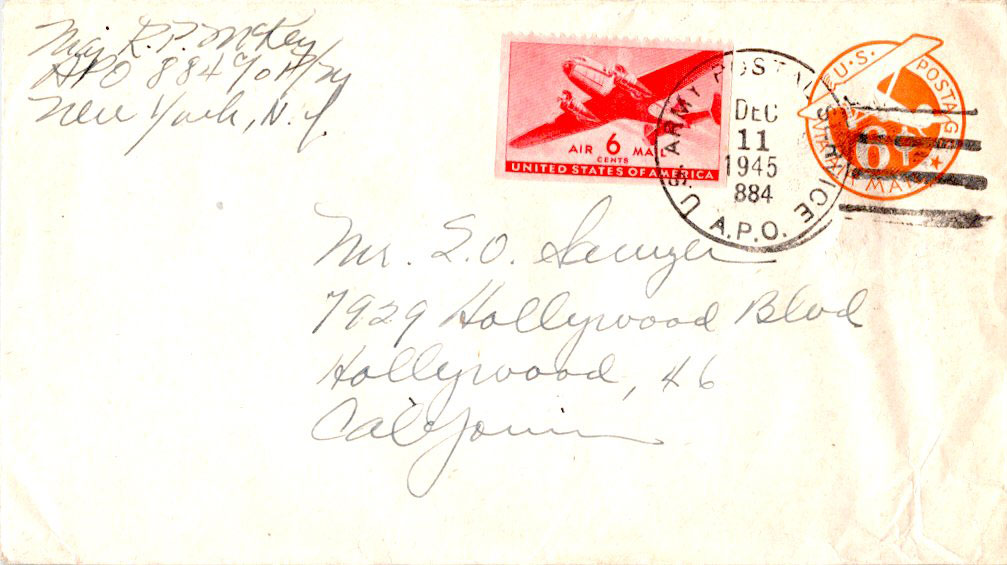 Maj R. P. McKey
APO 884 % P/M
New York, N.Y.
AIR 6 MAIL
CENTS
UNITED STATES OF AMERICA
U.S. ARMY POSTAL SERVICE
DEC
11
1945
884
A.P.O.
U.S. POSTAGE
6¢
VIA AIR MAIL
Mr. S. O. Sawyer
7929 Hollywood Blvd
Hollywood, 46
California